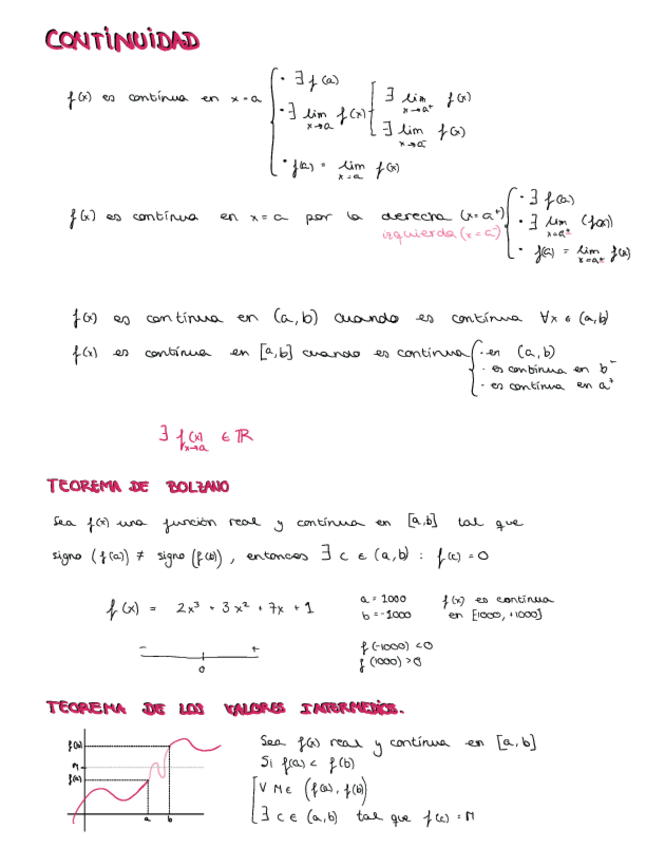 CONTINUIDAD
f(x) es contínua en x=a { · ∃ f(a)
· ∃ lim x→a f(x) [ ∃ lim x→a⁺ f(x)
∃ lim x→a⁻ f(x)
· f(a) = lim x→a f(x)
f(x) es contínua en x=a por la derecha (x=a⁺) { · ∃ f(a)
izquierda (x=a⁻)
· ∃ lim x→a± (f(x))
· f(a) = lim x→a± f(x)
f(x) es contínua en (a,b) cuando es contínua ∀x ∈ (a,b)
f(x) es contínua en [a,b] cuando es contínua { · en (a,b)
· es contínua en b⁻
· es contínua en a⁺
∃ f(x) x→a ∈ ℝ
TEOREMA DE BOLZANO
Sea f(x) una función real y contínua en [a,b] tal que
signo (f(a)) ≠ signo (f(b)), entonces ∃ c ∈ (a,b) : f(c) = 0
f(x) = 2x³ + 3x² + 7x + 1
a = 1000
b = -1000
f(x) es contínua
en [1000, +1000]
- +
0
f(-1000) < 0
f(1000) > 0
TEOREMA DE LOS VALORES INTERMEDIOS.
f(b)
M
f(a)
a b
Sea f(x) real y contínua en [a,b]
Si f(a) < f(b)
[ ∀ M ∈ (f(a), f(b))
∃ c ∈ (a,b) tal que f(c) = M